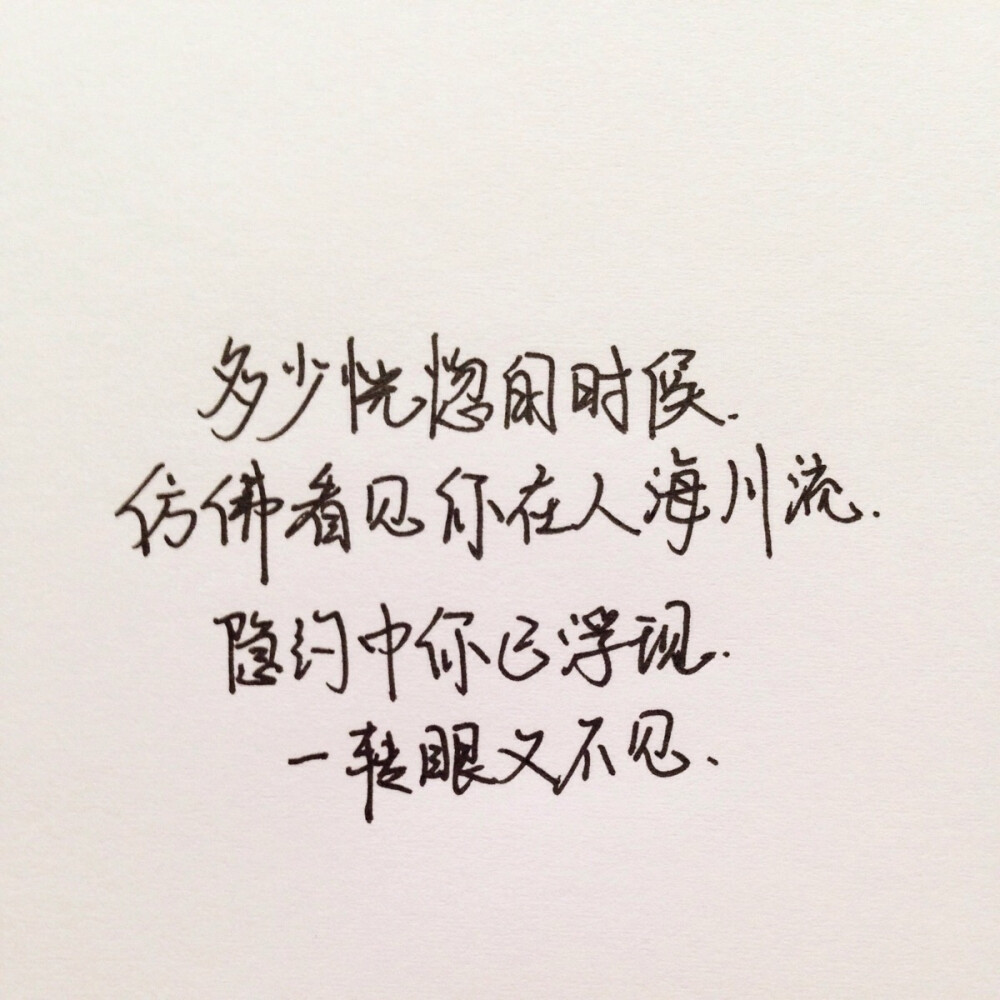 多少恍惚的时候.
仿佛看见你在人海川流.
隐约中你已浮现.
一转眼又不见.